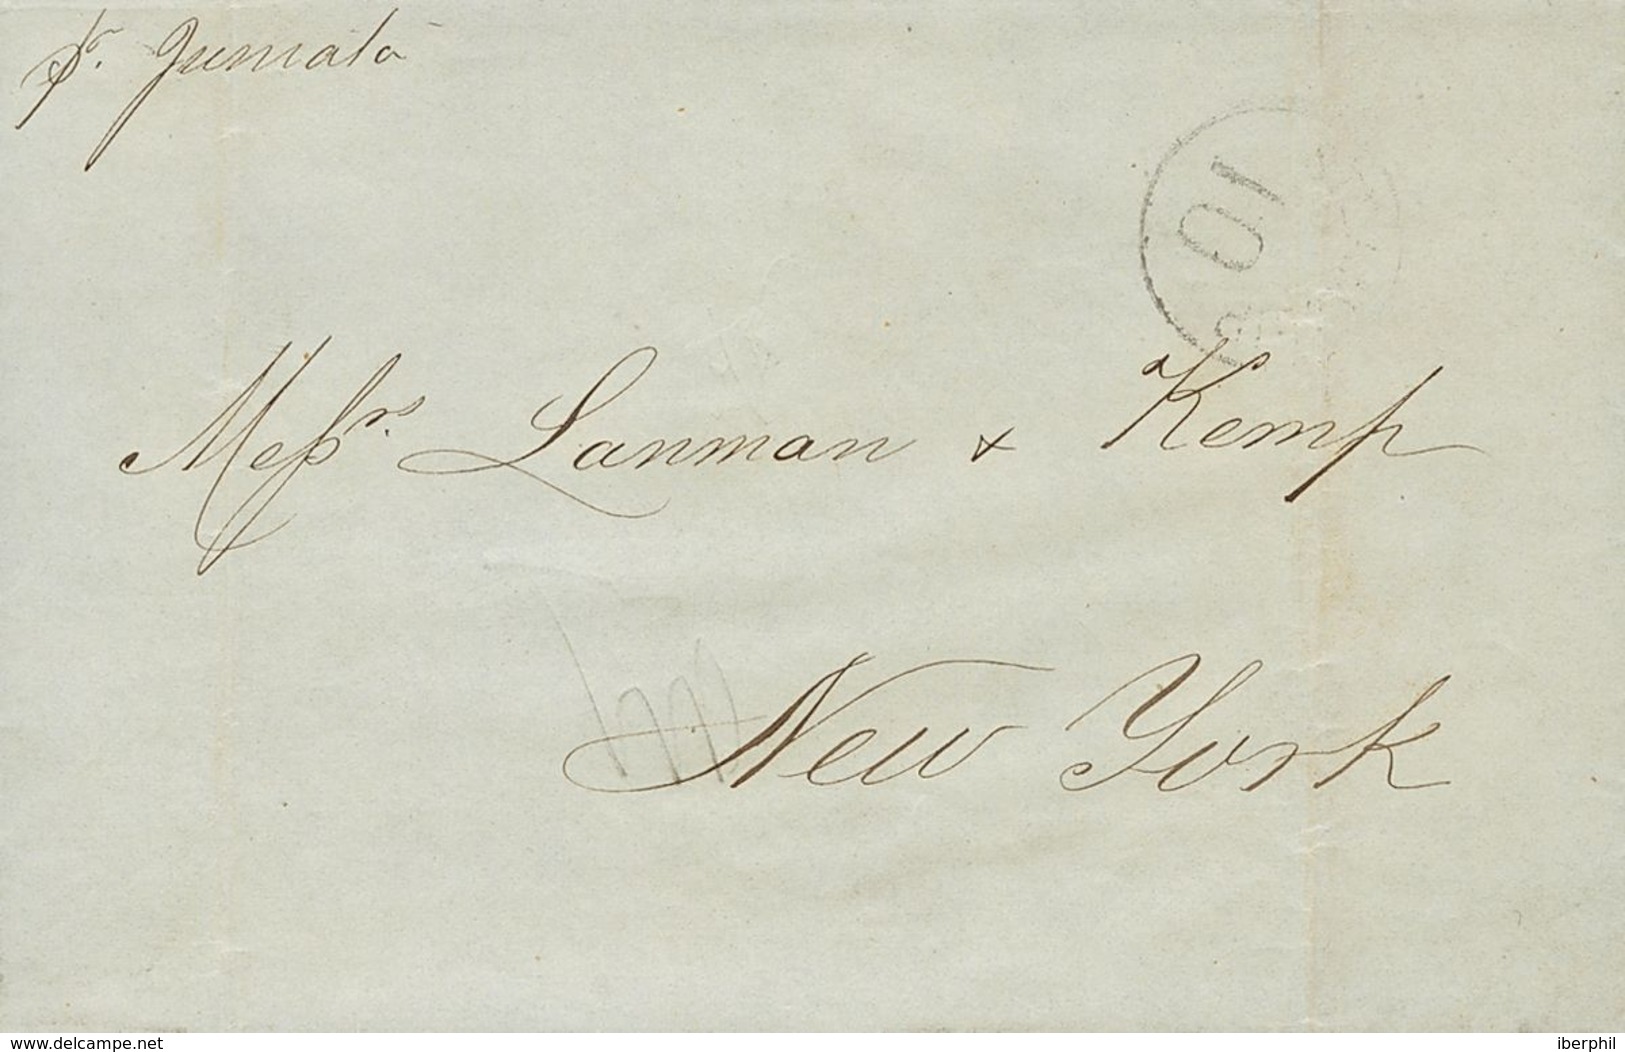 pr. Juniata
10
Messrs. Lanman & Kemp
New York
www.delcampe.net
iberphil